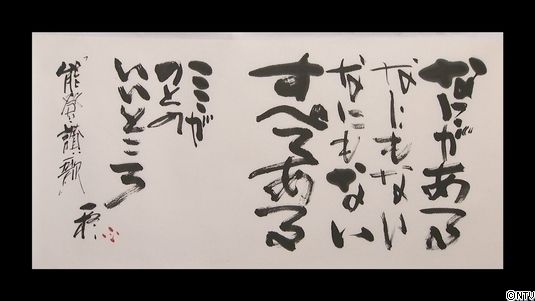 なにがある
なにもない
なにもない
すべてある
ここが
のとの
いいところ
「能登讃歌」
©NTU